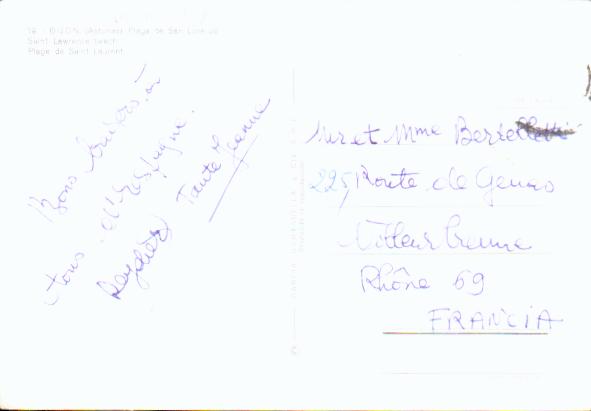 GIJON (Asturias) Playa de San Lorenzo
Saint Lawrence beach
Plage de Saint Laurent
Bons baisers à
tous d'Espagne.
Tante Jeanne
Mr et Mme Bertelletti
225, Route de Génas
Villeurbanne
Rhône 69
FRANCIA